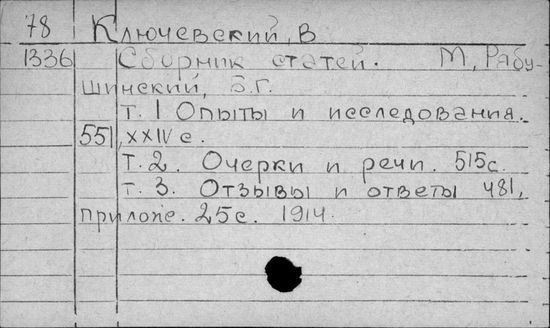 78 Ключевский, В
1336 Сборник статей. М, Рябу-
шинский, Б.г.
т. 1 Опыты и исследования.
551, XXIV с.
т. 2. Очерки и речи. 515с.
т. 3. Отзывы и ответы 481,
прилож. 25с. 1914.